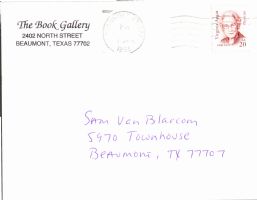 The Book Gallery
2402 NORTH STREET
BEAUMONT, TEXAS 77702
20
Sam Van Blarcom
5970 Townhouse
Beaumont, TX 77707